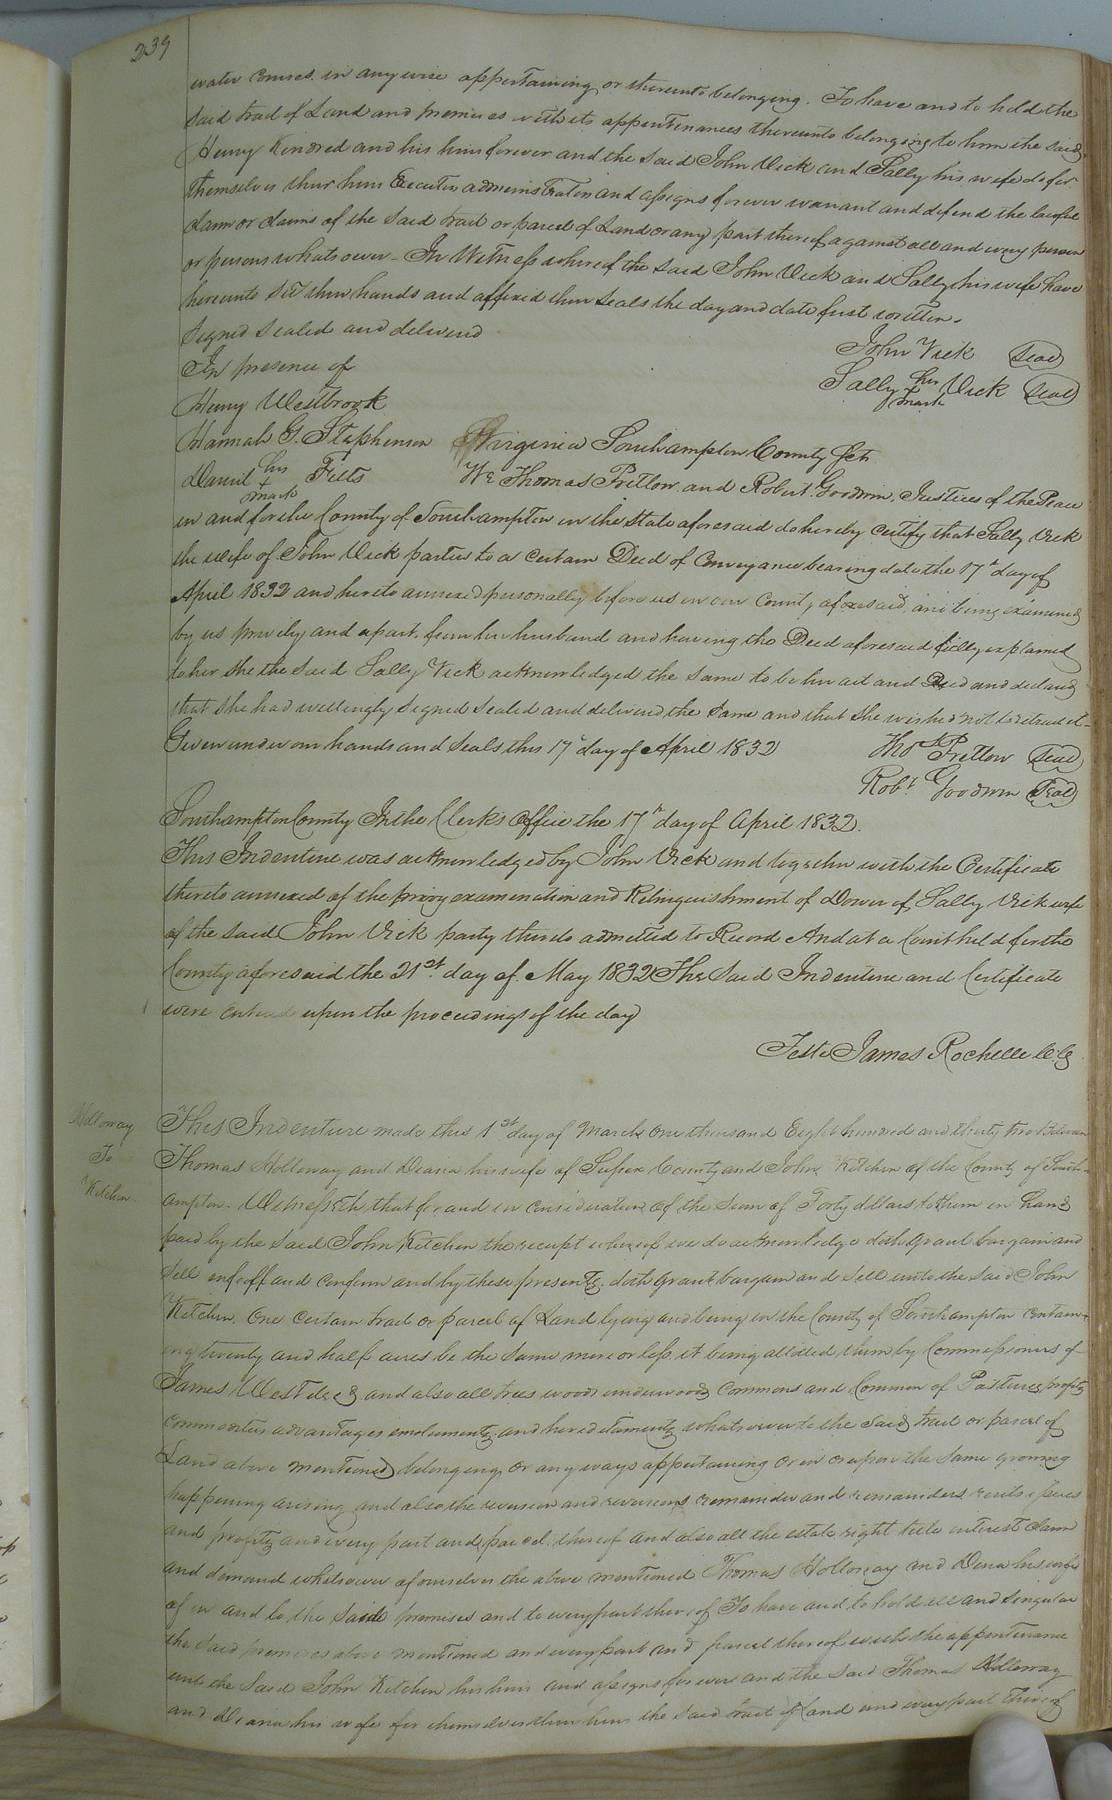 239
water courses in any wise appertaining or thereunto belonging. To have and to hold the
said tract of Land and premises with its appurtenances thereunto belonging to him the said
Henry Kindred and his heirs forever and the said John Vick and Sally his wife do for
themselves their heirs Executors administrators and assigns forever warrant and defend the lawful
claim or claims of the said tract or parcel of Land or any part thereof against all and every person
or persons whatsoever - In Witness whereof the said John Vick and Sally his wife have
hereunto set their hands and affixed their seals the day and date first written.
Signed sealed and delivered
In presence of
John Vick Seal
Sally her Vick Seal
mark
Henry Westbrook
Hannah G. Stephenson
Daniel his Felts
+
mark
Virginia Southampton County Sct.
We Thomas Pretlow and Robert Goodwin, Justices of the Peace
in and for the County of Southampton in the State aforesaid do hereby certify that Sally Vick
the wife of John Vick parties to a certain Deed of Conveyance bearing date the 17th day of
April 1832 and hereto annexed personally before us in our County aforesaid, and being examined
by us privily and apart from her husband and having the Deed aforesaid fully explained
to her she the said Sally Vick acknowledged the same to be her act and Deed and declared
that she had willingly signed sealed and delivered the same and that she wished not to retract it -
Given under our hands and seals this 17th day of April 1832
Thos Pretlow Seal
Robt. Goodwin Seal
Southampton County In the Clerks Office the 17th day of April 1832.
This Indenture was acknowledged by John Vick and together with the Certificate
thereto annexed of the privy examination and Relinquishment of Dower of Sally Vick wife
of the said John Vick party thereto admitted to Record And at a Court held for the
County aforesaid the 21st. day of May 1832 The Said Indenture and Certificate
were entered upon the proceedings of the day
Teste James Rochelle C.C.
Holloway
To
Kitchen
This Indenture made this 1st day of March One thousand Eight hundred and thirty two Between
Thomas Holloway and Deana his wife of Sussex County and John Kitchen of the County of South-
ampton. Witnesseth that for and in consideration of the Sum of Forty dollars to them in hand
paid by the said John Kitchen the receipt whereof we do acknowledge doth grant bargain and
sell enfeoff and confirm and by these presents doth grant bargain and sell unto the said John
Kitchen, One certain tract or parcel of Land lying and being in the County of Southampton contain-
ing twenty and half acres be the same more or less it being allotted them by Commissioners of
James West decd and also all trees woods underwoods Commons and Common of Pasture profits
commodities advantages emoluments and hereditaments whatsoever to the said tract or parcel of
Land above mentioned belonging or any ways appertaining or in or upon the same growing
happening arising and also the reversion and reversions remainder and remainders rents issues
and profits and every part and parcel thereof and also all the estate right title interest claim
and demand whatsoever of ourselves the above mentioned Thomas Holloway and Dena his wife
of in and to the said premises and to every part thereof To have and to hold all and singular
the said premises above mentioned and every part and parcel thereof with the appurtenance
unto the said John Kitchen his heirs and assigns forever and the said Thomas Holloway
and Deana his wife for themselves their heirs the said tract of Land and every part thereof